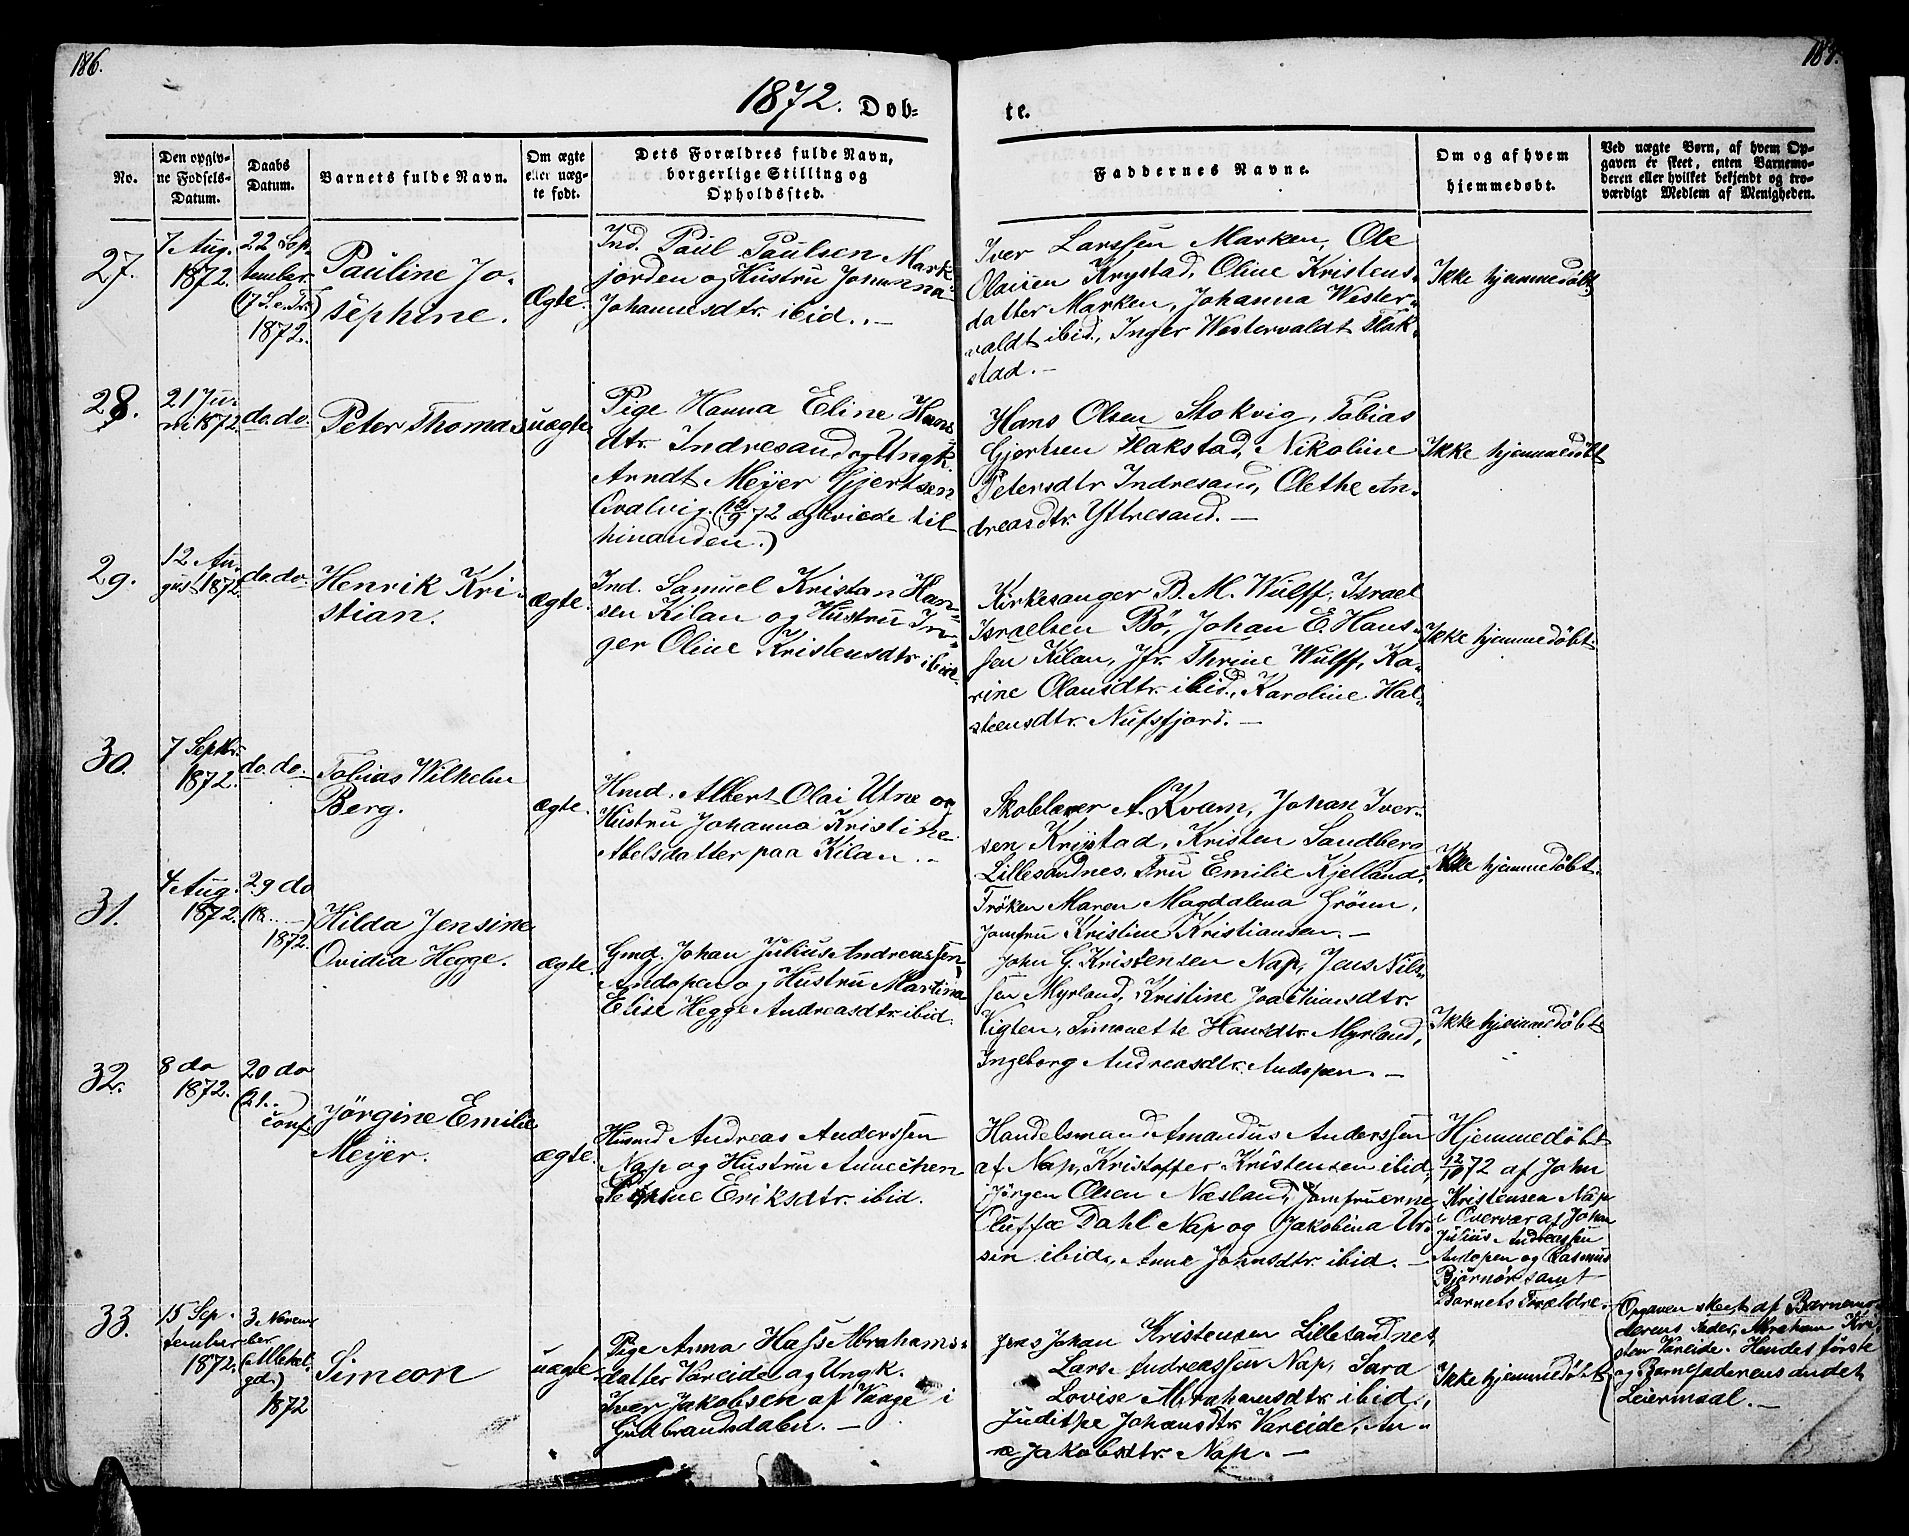 186.
187.
1872. Døb-
te.
No.
Den opgiv-
ne Fødsels-
Datum.
Daabs
Datum.
Barnets fulde Navn.
Om ægte
eller uæg-
te født.
Dets Forældres fulde Navn,
borgerlige Stilling og
Opholdssted.
Faddernes Navne.
Om og af hvem
hjemmedøbt.
Ved uægte Børn, af hvem Op-
gaven er skeet, enten Barnemo-
deren eller hvilket bekjendt og tro-
værdigt Medlem af Menigheden.
27.
7 Aug.
1872.
22 Sep-
tember
(17 S. e. Tr.)
1872.
Pauline Jo-
sephine.
Ægte.
Ind. Paul Paulsen Mark-
jorden og Hustru Johanna
Johannesdtr. ibid. –
Iver Larssen Marken, Ole
Olaisen Krystad, Oline Kristens-
datter Marken, Johanna Wester-
valdt ibid., Inger Westervaldt Flak-
stad. –
Ikke hjemmedøbt.
28.
21 Ju-
ni 1872.
do. do.
Peter Thomas
uægte
Pige Hanna Eline Hans-
dtr. Indresand og Ungk.
Arndt Meyer Gjertsen
Qvalvig. (22/9 72 ægteviede til
hinanden.)
Hans Olsen Stokvig, Tobias
Gjertsen Flakstad, Nikoline
Petersdtr Indresand, Olethe An-
dreasdtr. Yttresand. –
Ikke hjemmedöbt
29.
12 Au-
gust 1872
do. do.
Henrik Kri-
stian.
ægte.
Ind. Samuel Kristan Han-
sen Kilan og Hustru In-
ger Oline Kristensdtr. ibid.
Kirkesanger B. M. Wulff, Israel
Israelsen Bö, Johan E. Hans-
sen Kilan, Jfr. Thrine Wulff, Ka-
rine Olausdtr. ibid., Karoline Hal-
steensdtr. Nufsfjord. –
Ikke hjemmedöbt.
30.
7 Septbr.
1872.
do. do.
Tobias Wilhelm
Berg.
ægte.
Hmd. Albert Olai Utne og
Hustru Johanna Kristine
Abelsdatter paa Kilan. –
Skolelærer A. Kvam, Johan Iver-
sen Krystad, Kristen Sandberg
Lillesandnes, Fru Emilie Kjelland,
Fröken Maren Magdalena Grönn,
Jomfru Kristine Kristiansen. –
Ikke hjemmedöbt.
31.
4 Aug.
1872.
29 do
(18. –)
1872.
Hilda Jensine
Ovidia Hegge.
ægte.
Gmd. Johan Julius Andreassen
Andopen og Hustru Martina
Elise Hegge Andreasdtr. ibid.
John G. Kristensen Nap, Jens Nils-
sen Myrland, Kristine Joachimsdtr.
Vigten, Simonette Hansdtr. Myrland,
Ingeborg Andreasdtr. Andopen. –
Ikke hjemmedöbt
32.
8 do
1872.
20 do
(21..)
conf.
Jörgine Emilie
Meyer.
ægte.
Husmd Andreas Anderssen
Nap og Hustru Annichen
Eriksdtr. ibid.
Handelsmand Amandus Anderssen
af Nap, Kristoffer Kristensen ibid,
Jörgen Olsen Næsland, Jomfruerne
Oluffa Dahl Nap og Jakobina Ur-
sin ibid., Anne Johnsdtr. ibid. –
Hjemmedöbt
12/10 72 af John
Kristensen Nap
i Overvær af Johan
Julius Andreassen
Andopen og Rasmus
Bjørnör samt
Barnets Forældre.
33.
15 Sep-
tember
1872.
3 Novem-
ber
(Allehel-
gd.)
1872
Simeon
uægte
Pige Anna Hass Abrahams-
datter Vareide og Ungk.
Iver Jakobsen af Vaage i
Gudbrandsdalen. –
Jens Johan Kristensen Lillesandnes,
Lars Andreassen Nap, Sara
Lovise Abrahamsdtr. ibid.,
Judithe Johansdtr. Vareide, An-
ne Jakobsdtr. Nap. –
Ikke hjemmedöbt
Opgaven skeet af Barnemo-
derens Fader, Abraham Kri-
sten Vareide. Hendes förste
og Barnefaderens andet
Leiermaal. –